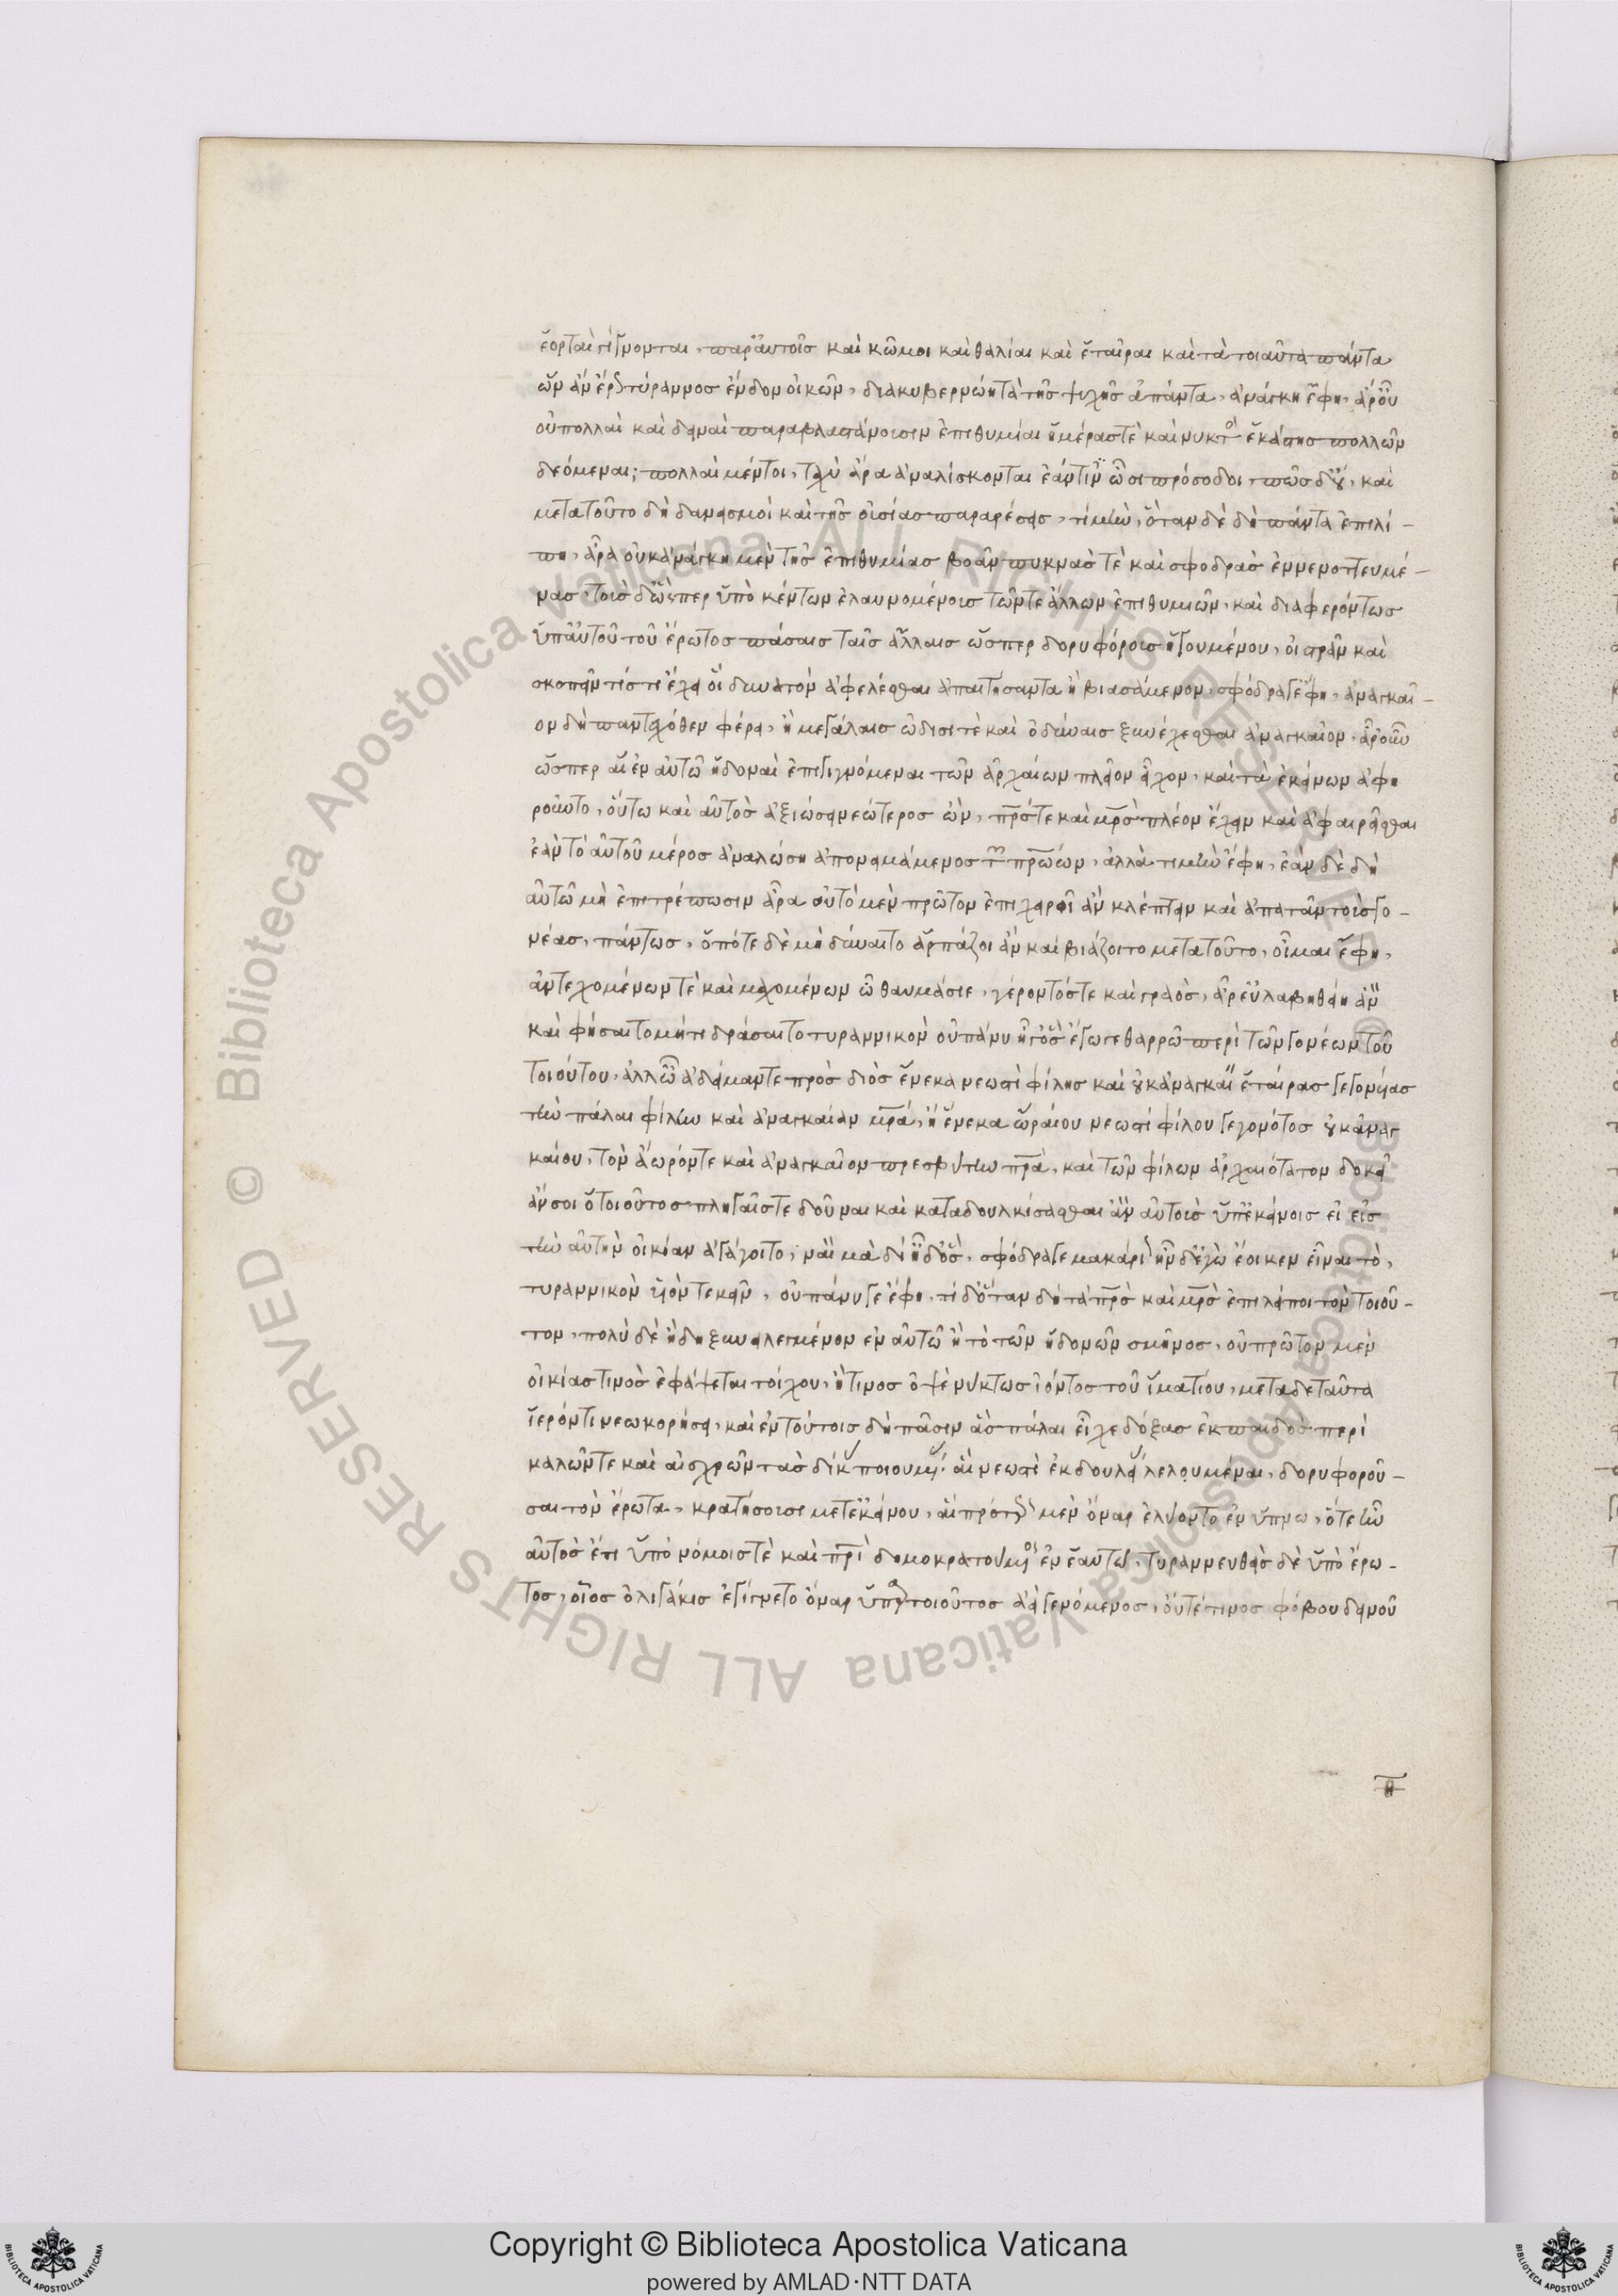 ἑορταὶ γίγνονται παρ' αὐτοῖς καὶ κῶμοι καὶ θάλιαι καὶ ἑταῖραι καὶ τὰ τοιαῦτα πάντα
ὧν ἂν ἔρως τύραννος ἔνδον οἰκῶν, διακυβερνώη τὰ τῆς ψυχῆς ἅπαντα, ἀνάγκη ἔφη, ἆρ' οὖν
οὐ πολλαὶ καὶ δειναὶ παραβλαστάνουσιν ἐπιθυμίαι ἡμέρας τὲ καὶ νυκτὸς ἑκάστης πολλῶν
δεόμεναι; πολλαὶ μέντοι, ταχὺ ἄρα ἀναλίσκονται ἐάν τινες ὦσι πρόσοδοι, πῶς δ' οὔ, καὶ
μετὰ τοῦτο δὴ δανεισμοὶ καὶ τῆς οὐσίας παραιρέσεις, τί μὴν, ὅταν δὲ δὴ πάντα ἐπιλί-
πη, ἆρα οὐκ ἀνάγκη μὲν τὰς ἐπιθυμίας βοᾶν πυκνάς τὲ καὶ σφοδρὰς ἐννενοττευμέ-
νας, τοὺς δ' ὥσπερ ὑπὸ κέντρων ἐλαυνομένους τῶν τε ἄλλων ἐπιθυμιῶν, καὶ διαφερόντως
ὑπ' αὐτοῦ τοῦ ἔρωτος πάσαις ταῖς ἄλλαις ὥσπερ δορυφόροις ἡγουμένου, οἰστρᾶν καὶ
σκοπεῖν τίς τι ἔχει ὃν δυνατὸν ἀφελέσθαι ἀπατήσαντα ἢ βιασάμενον, σφόδρα γ' ἔφη, ἀναγκαῖ-
ον δὴ πανταχόθεν φέρειν, ἢ μεγάλαις ὠδῖσί τὲ καὶ ὀδύναις ξυνέχεσθαι ἀναγκαῖον, ἆρ' οὖν
ὥσπερ αἱ ἐν αὐτῶ ἡδοναὶ ἐπιγιγνόμεναι τῶν ἀρχαίων πλεῖον εἶχον, καὶ τὰ ἐκείνων ἀφη
ροῦντο, οὕτω καὶ αὐτὸς ἀξιώσει νεώτερος ὢν, πατρός τε καὶ μητρὸς πλέον ἔχειν καὶ ἀφαιρεῖσθαι
ἐὰν τὸ αὑτοῦ μέρος ἀναλώση ἀπονειμάμενος τῶν πατρώων, ἀλλὰ τί μὴν ἔφη, ἐὰν δὲ δὴ
αὐτῶ μὴ ἐπιτρέπωσιν ἆρα οὐ τὸ μὲν πρῶτον ἐπιχειροῖ ἂν κλέπτειν καὶ ἀπατᾶν τοὺς γο-
νέας, πάντως, ὁπότε δὲ μὴ δύναιτο ἁρπάζοι ἂν καὶ βιάζοιτο μετὰ τοῦτο, οἶμαι ἔφη,
ἀντεχομένων τὲ καὶ μαχομένων ὦ θαυμάσιε, γέροντός τε καὶ γραὸς, ἆρ' εὐλαβηθείη ἂν
καὶ φείσαιτο μή τι δρᾶσαι τῶν τυραννικῶν οὐ πάνυ ἦ δ' ὃς ἔγωγε θαρρῶ περὶ τῶν γονέων τοῦ
τοιούτου, ἀλλ' ὦ ἀδείμαντε πρὸς διὸς ἕνεκα νεωστὶ φίλης καὶ οὐκ ἀναγκαίας ἑταίρας γεγονυίας
τὴν πάλαι φίλην καὶ ἀναγκαίαν μητέρα, ἢ ἕνεκα ὡραίου νεωστὶ φίλου γεγονότος οὐκ ἀναγ
καίου, τὸν ἄωρόν τε καὶ ἀναγκαῖον πρεσβύτην πατέρα, καὶ τῶν φίλων ἀρχαιότατον δοκεῖ
ἄν σοι ὁ τοιοῦτος πληγαῖς τε δοῦναι καὶ καταδουλώσασθαι ἂν αὐτοὺς ὑπ' ἐκείνοις εἰ εἰς
τὴν αὐτὴν οἰκίαν ἀγάγοιτο, ναὶ μὰ δί' ἦ δ' ὃς, σφόδρα γε μακάριον ἦν δ' ἐγὼ ἔοικεν εἶναι τὸ,
τυραννικὸν υἱὸν τεκεῖν, οὐ πάνυ γ' ἔφη, τί δ' ὅταν δὴ τὰ πατρὸς καὶ μητρὸς ἐπιλείποι τὸν τοιοῦ-
τον, πολὺ δὲ ἤδη ξυνειλεγμένον ἐν αὐτῶ ἢ τὸ τῶν ἡδονῶν σμῆνος, οὐ πρῶτον μὲν
οἰκίας τινὸς ἐφάψεται τοίχου, ἤ τινος ὀψὲ νύκτωρ ἰόντος τοῦ ἱματίου, μετὰ δὲ ταῦτα
ἱερόν τι νεωκορήσει, καὶ ἐν τούτοις δὴ πᾶσιν ἃς πάλαι εἶχε δόξας ἐκ παιδὸς περὶ
καλῶν τε καὶ αἰσχρῶν τὰς δίκας ποιουμένας αἱ νεωστὶ ἐκ δουλείας λελυμέναι, δορυφοροῦ-
σαι τὸν ἔρωτα, κρατήσουσι μετ' ἐκείνου, αἳ πρότερον μὲν ὄναρ ἐλύοντο ἐν ὕπνω, ὅτε ἦν
αὐτὸς ἔτι ὑπὸ νόμοις τὲ καὶ πατρὶ δημοκρατούμενος ἐν ἑαυτῶ, τυραννευθεὶς δὲ ὑπὸ ἔρω-
τος, οἷος ὀλιγάκις ἐγίγνετο ὄναρ ὕπαρ τοιοῦτος ἀεὶ γενόμενος, οὔτέ τινος φόβου δεινοῦ
Copyright © Biblioteca Apostolica Vaticana
powered by AMLAD·NTT DATA